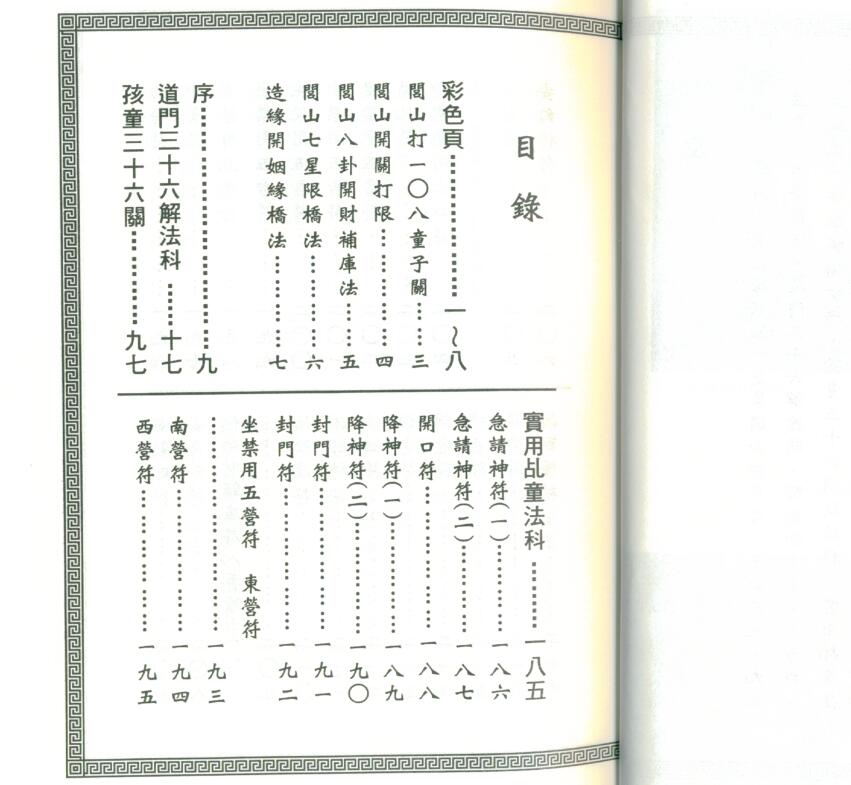 目錄
彩色頁……………………一～八
閭山打一〇八童子關……三
閭山開關打限……………四
閭山八卦開財補庫法……五
閭山七星限橋法…………六
造緣開姻緣橋法…………七
序…………………………九
道門三十六解法科………十七
孩童三十六關……………九七
實用乩童法科…………一八五
急請神符(一)…………一八六
急請神符(二)…………一八七
開口符…………………一八八
降神符(一)……………一八九
降神符(二)……………一九〇
封門符…………………一九一
封門符…………………一九二
坐禁用五營符　東營符
…………………………一九三
南營符…………………一九四
西營符…………………一九五